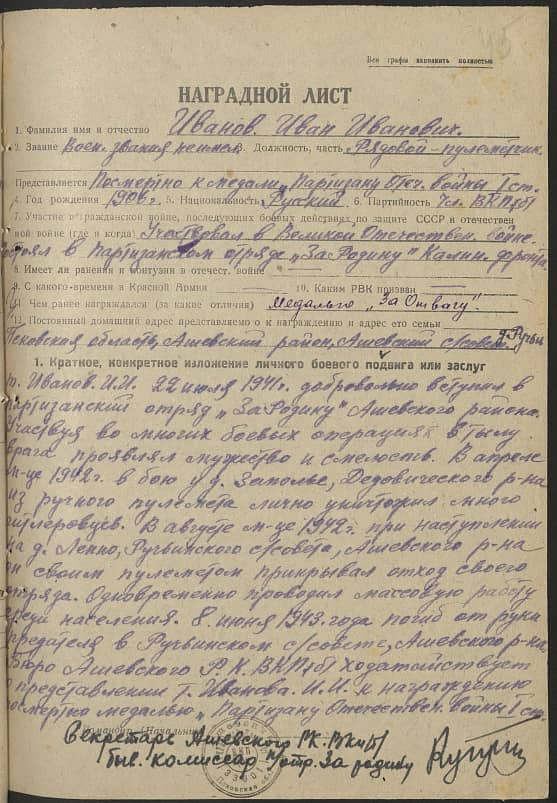 Все графы заполнять полностью
НАГРАДНОЙ ЛИСТ
1. Фамилия имя и отчество Иванов Иван Иванович.
2. Звание Воен. звания не имел 3. Должность, часть Рядовой-пулеметчик
Представляется Посмертно к медали „Партизану Отеч. войны I ст.
4. Год рождения 1906 г. 5. Национальность Русский 6. Партийность Чл. ВКП(б)
7. Участие в гражданской войне, последующих боевых действиях по защите СССР и отечествен
ной войне (где и когда) Участвовал в Великой Отечествен. войне
состоял в Партизанском отряде „За Родину" Калин. фронта
8. Имеет ли ранения и контузии в отечест. войне —
9. С какого времени в Красной Армии — 10. Каким РВК призван —
11. Чем ранее награждался (за какие отличия) медалью „За Отвагу".
12. Постоянный домашний адрес представляемого к награждению и адрес его семьи
Псковская область, Ашевский район, Ашевский с/совет,
1. Краткое, конкретное изложение личного боевого подвига или заслуг
т. Иванов. И.И. 22 июля 1941г. добровольно вступил в
партизанский отряд „За Родину" Ашевского района.
Участвуя во многих боевых операциях в тылу
врага проявлял мужество и смелость. В апреле
м-це 1942г. в бою у д. Заполье, Дедовического р-на
из ручного пулемета лично уничтожил много
гитлеровцев. В августе м-це 1942г. при наступлении
на д. Ручьинского с/совета, Ашевского р-на
он своим пулеметом прикрывал отход своего
отряда. Одновременно проводил массовую работу
среди населения. 8 июня 1943 года погиб от руки
предателя в Ручьинском с/совете, Ашевского р-на.
Бюро Ашевского Р.К. ВКП(б) ходатайствует
о представлении т. Иванова. И.И. к награждению
посмертно медалью „Партизану Отечествен. войны I ст.
Командир (Начальник)
Секретарь Ашевского РК ВКП(б)
быв. комиссар п/отр. За родину